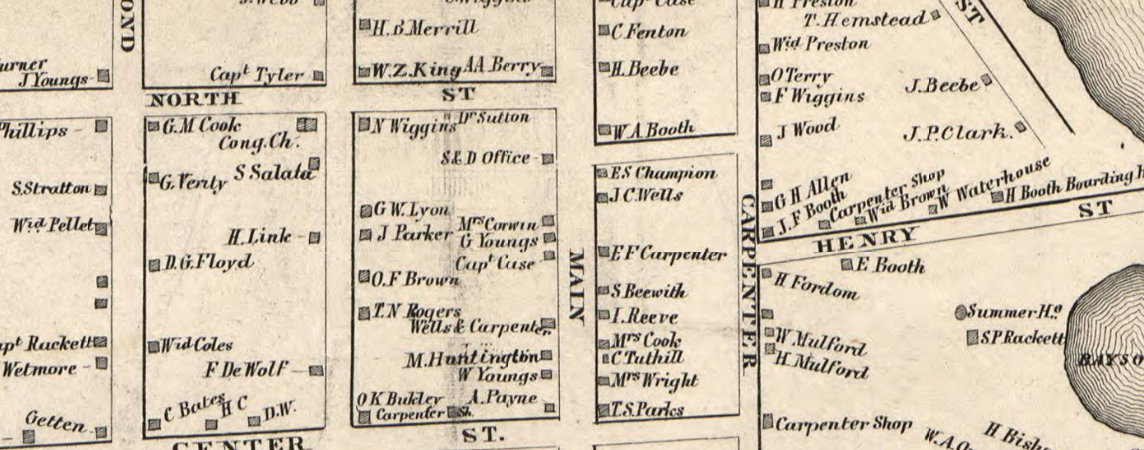 H.B Merrill
Capt Case
H Preston
T. Hemstead
ST
C Fenton
Wid Preston
J Youngs
Capt Tyler
W.Z. King
A A Berry
H. Beebe
O Terry
F Wiggins
J. Beebe
NORTH
ST
Phillips
G.M Cook
Cong. Ch.
N Wiggins
Dr Sutton
W A Booth
J Wood
J. P. Clark.
S & D Office
S. Stratton
G. Verity
S Salata
E S Champion
J C. Wells
G H Allen
J. F Booth
Carpenter Shop
Wid Brown
W Waterhouse
H Booth Boarding
Wid Pellet
G W. Lyon
Mrs Corwin
J Parker
G Youngs
H. Link
Capt Case
MAIN
E F Carpenter
CARPENTER
HENRY
ST
E Booth
D. G. Floyd
O. F Brown
S Beewith
H Fordom
T. N Rogers
Wells & Carpenter
I. Reeve
Summer Ho
S. P Rackett
Rackett
Wid Coles
Mrs Cook
C Tuthill
W. Mulford
H Mulford
Wetmore
F De Wolf
M. Huntington
W Youngs
Mrs Wright
Getten
C Bates
H C
D. W.
O K Bukley
A. Payne
Carpenter Sh.
T. S. Parks
Carpenter Shop
CENTER
ST.